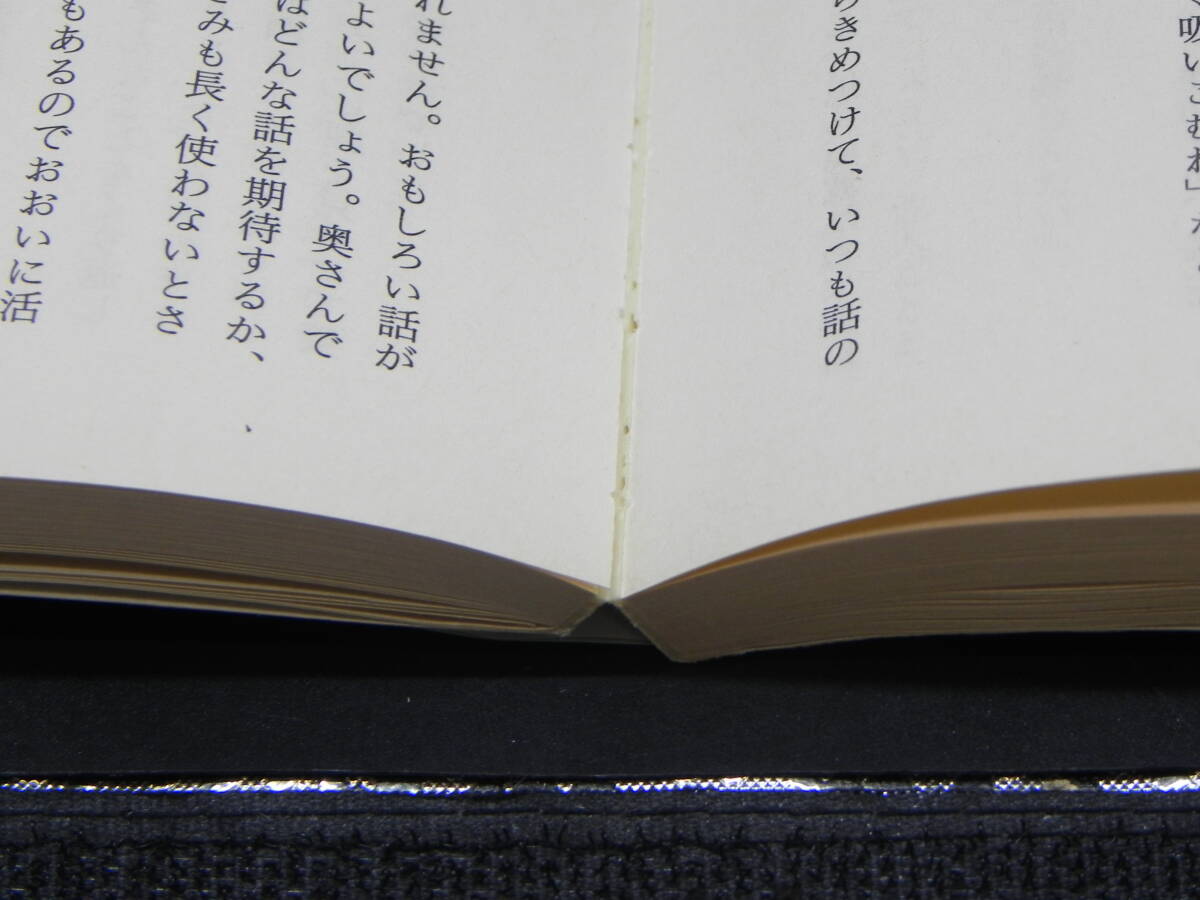 吸いこむね」
らきめつけて、いつも話の
れません。おもしろい話が
よいでしょう。奥さんで
はどんな話を期待するか、
みも長く使わないとさ
もあるのでおおいに活